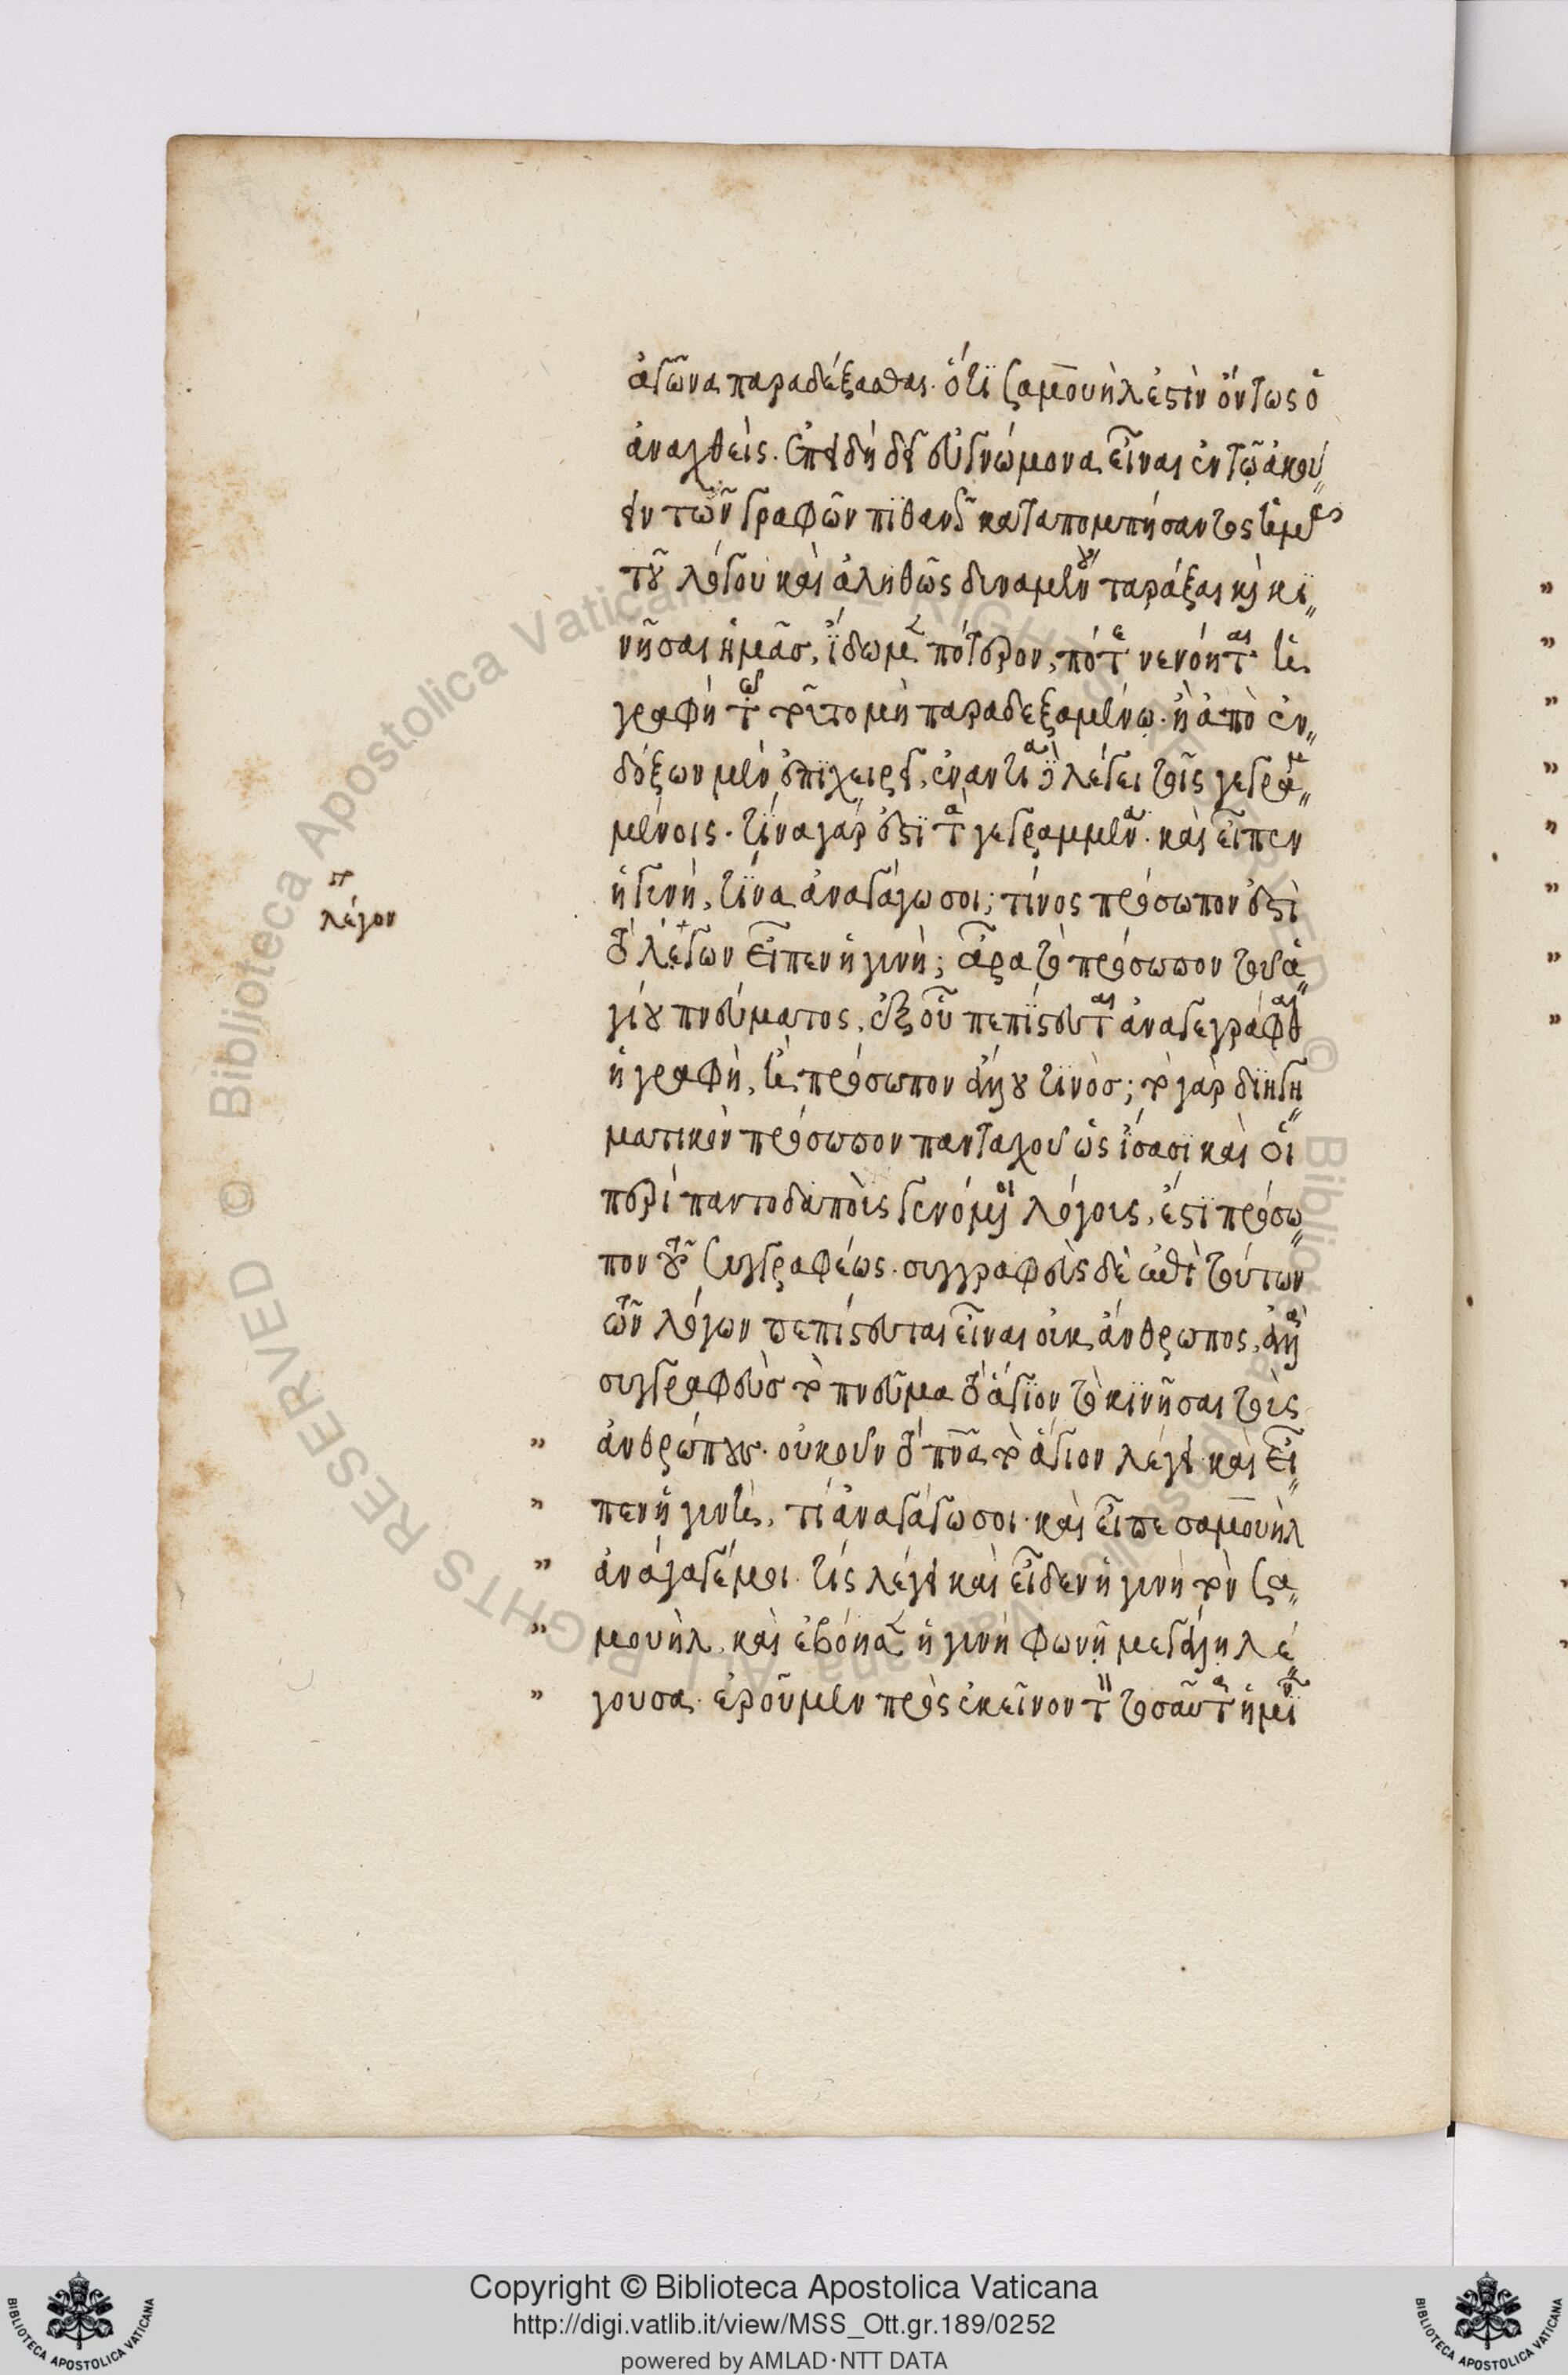 ἀγῶνα παραδέξασθαι. ὅτι σαμουὴλ ἐστὶν ὄντως ὁ
ἀναχθεὶς. Ἐπεὶ δὴ δεῖ εὐγνώμονα εἶναι ἐν τῷ ἀκού
ειν τῶν γραφῶν πιθανῶς καταπομπήσαντος ἡμᾶς
τοῦ λόγου καὶ ἀληθῶς δυναμένου ταράξαι καὶ κι
νῆσαι ἡμᾶσ, ἴδωμεν πότερον, πότε νενόηται ἡ
γραφὴ τῷ τοῦτο μὴ παραδεξαμένω. ἢ ἀπὸ ἐν
δόξων μὲν ἐπιχειρεῖ, ἐναντία δὲ λέγει τοῖς γεγραμ
μένοις. τίνα γάρ ἐστι τὰ γεγραμμένα. καὶ εἶπεν
ἡ γυνὴ, τίνα ἀναγάγω σοι; τίνος πρόσωπον ἐστὶ
λέγον
τὸ λέγων εἶπεν ἡ γυνὴ; ἆρα τὸ πρόσωπον τοῦ ἁ
γίου πνεύματος, ἐξ οὗ πεπίστευται ἀναγεγράφθαι
ἡ γραφὴ, ἢ πρόσωπον ἄλλου τινὸσ; τὸ γὰρ διηγη
ματικὸν πρόσωπον πανταχοῦ ὡς ἴσασι καὶ οἱ
περὶ παντοδαποὺς γενόμενοι λόγοις, ἐστὶ πρόσω
πον τοῦ συγγραφέως. συγγραφεὺς δὲ ἐπὶ τούτων
τῶν λόγων πεπίστευται εἶναι οὐκ ἄνθρωπος, ἀλλὰ
συγγραφεὺσ τὸ πνεῦμα τὸ ἅγιον τὸ κινῆσαι τοὺς
ἀνθρώπους. οὐκοῦν τὸ πνα τὸ ἅγιον λέγει καὶ εἶ
πεν ἡ γυνὴ, τί ἀναγάγω σοι. καὶ εἶπε σαμουὴλ
ἀνάγαγέ μοι. τίς λέγει καὶ εἶδεν ἡ γυνὴ τὸν σα
μουὴλ. καὶ ἐβόησεν ἡ γυνὴ φωνῇ μεγάλῃ λέ
γουσα. ἐροῦμεν πρὸς ἐκεῖνον τὸν τοσαῦτα ἡμῖν
Copyright © Biblioteca Apostolica Vaticana
http://digi.vatlib.it/view/MSS_Ott.gr.189/0252
powered by AMLAD·NTT DATA